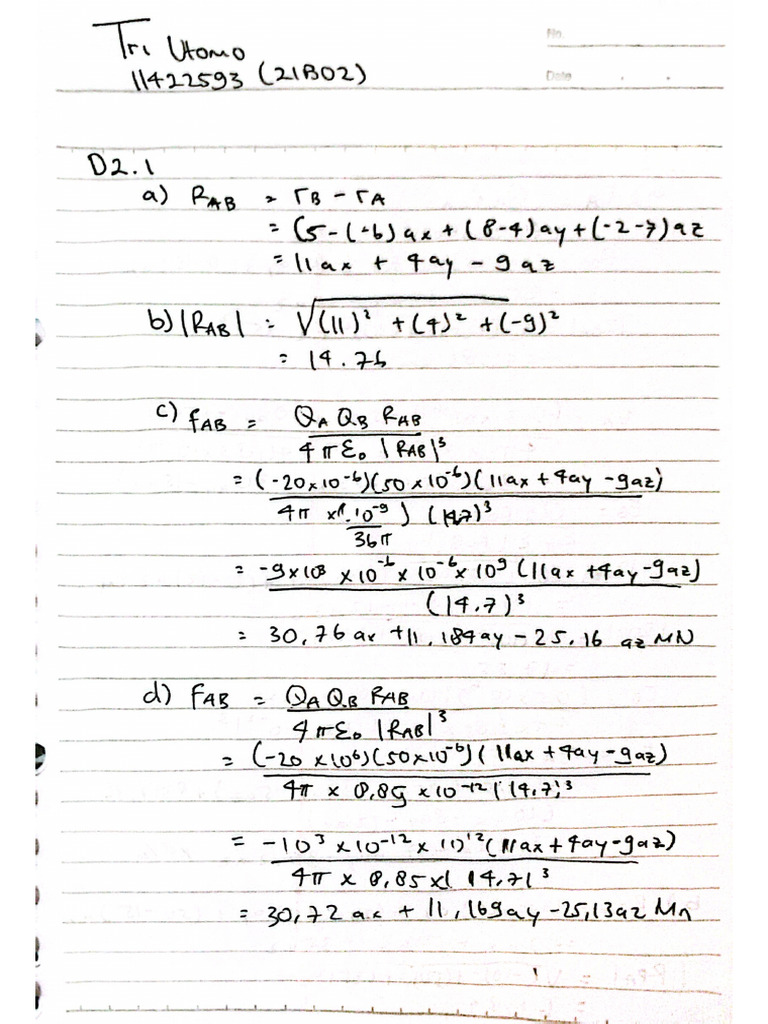 Tri Utomo
No.
11422593 (21B02)
Date . .
D2.1
a) RAB = rB - rA
= (5-(-6)ax + (8-4)ay + (-2-7)az
= 11ax + 4ay - 9az
b) |RAB| = √(11)² + (4)² + (-9)²
= 14.76
c) fAB = QA QB RAB
4πε₀ |RAB|³
= (-20×10⁻⁶)(50×10⁻⁶)(11ax + 4ay - 9az)
4π × 1.10⁻⁹ ) (14,7)³
36π
= -9×10³ ×10⁻⁶×10⁻⁶×10⁹ (11ax +4ay-9az)
(14.7)³
= 30,76 ax +11,184ay - 25.16 az MN
d) FAB = QA QB RAB
4πε₀ |RAB|³
= (-20 ×10⁶)(50×10⁻⁶)(11ax +4ay-9az)
4π × 8,85 ×10⁻¹² (14.7)³
= -10³ ×10⁻¹² × 10¹² (11ax+4ay-9az)
4π × 8,85×( 14,7)³
= 30,72 ax + 11,169ay -25,13az Mn